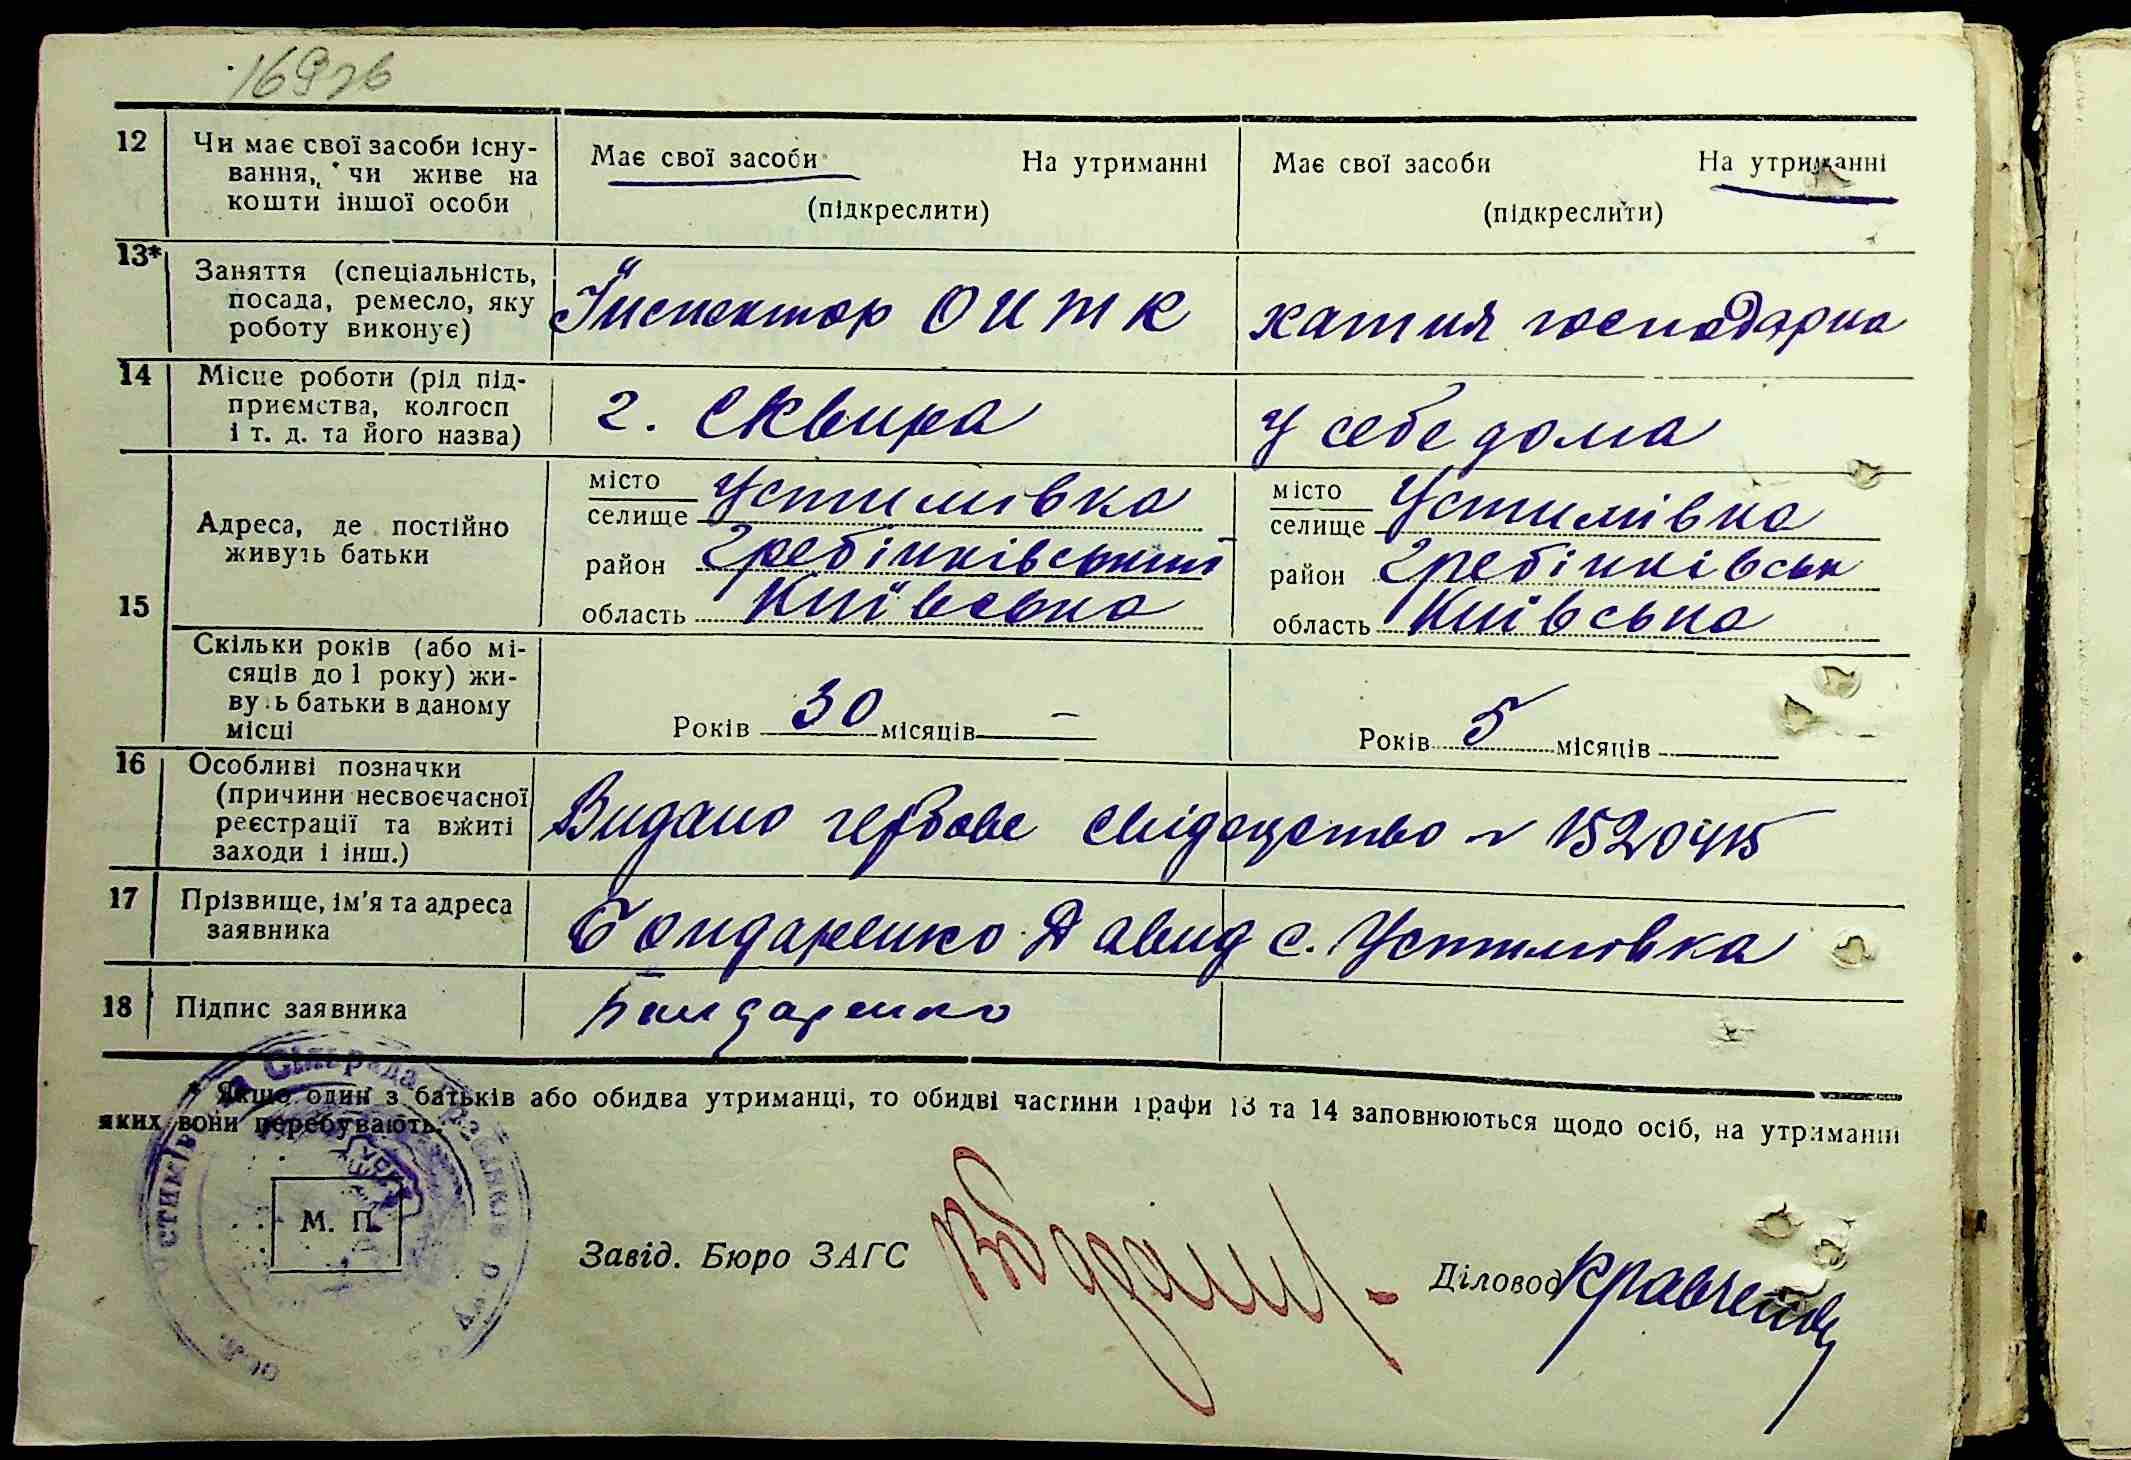 169 зв
12 Чи має свої засоби існу-
вання, чи живе на
кошти іншої особи
Має свої засоби На утриманні
(підкреслити)
Має свої засоби На утриманні
(підкреслити)
13* Заняття (спеціальність,
посада, ремесло, яку
роботу виконує)
Їнспектор ОИТК
хатня господарка
14 Місце роботи (рід під-
приємства, колгосп
і т. д. та його назва)
г. Сквира
у себе дома
15 Адреса, де постійно
живуть батьки
місто
селище Устимівка
район Гребінківський
область Київська
місто
селище Устимівка
район Гребінківськ
область Київська
Скільки років (або мі-
сяців до 1 року) жи-
вуть батьки в даному
місці
Років 30 місяців —
Років 5 місяців
16 Особливі позначки
(причини несвоєчасної
реєстрації та вжиті
заходи і інш.)
Видано гербове свідоцтво № 152045
17 Прізвище, ім'я та адреса
заявника
Бондаренко Давид с. Устимовка
18 Підпис заявника
Бондаренко
* Якщо один з батьків або обидва утриманці, то обидві частини графи 13 та 14 заповнюються щодо осіб, на утриманні
яких вони перебувають.
Сільрада
М. П.
Завід. Бюро ЗАГС
Діловод Кравченко